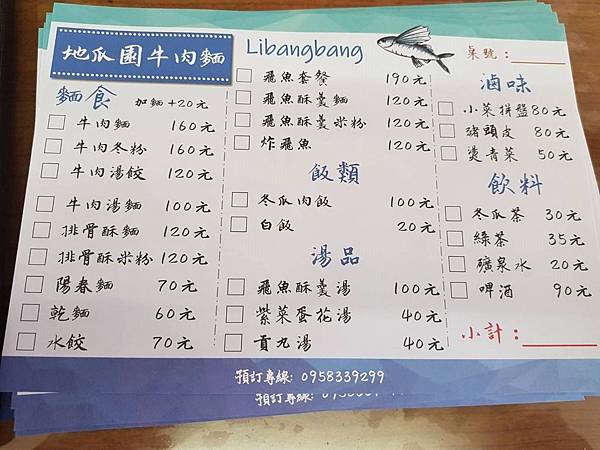 地瓜園牛肉麵
麵食 加麵+20元
牛肉麵 160元
牛肉冬粉 160元
牛肉湯餃 120元
牛肉湯麵 100元
排骨酥麵 120元
排骨酥米粉 120元
陽春麵 70元
乾麵 60元
水餃 70元
Libangbang
飛魚套餐 190元
飛魚酥羹麵 120元
飛魚酥羹米粉 120元
炸飛魚 120元
飯類
冬瓜肉飯 100元
白飯 20元
湯品
飛魚酥羹湯 100元
紫菜蛋花湯 40元
貢丸湯 40元
桌號:
滷味
小菜拼盤 80元
豬頭皮 80元
燙青菜 50元
飲料
冬瓜茶 30元
綠茶 35元
礦泉水 20元
啤酒 90元
小計:
預訂專線: 0958339299
預訂專線: